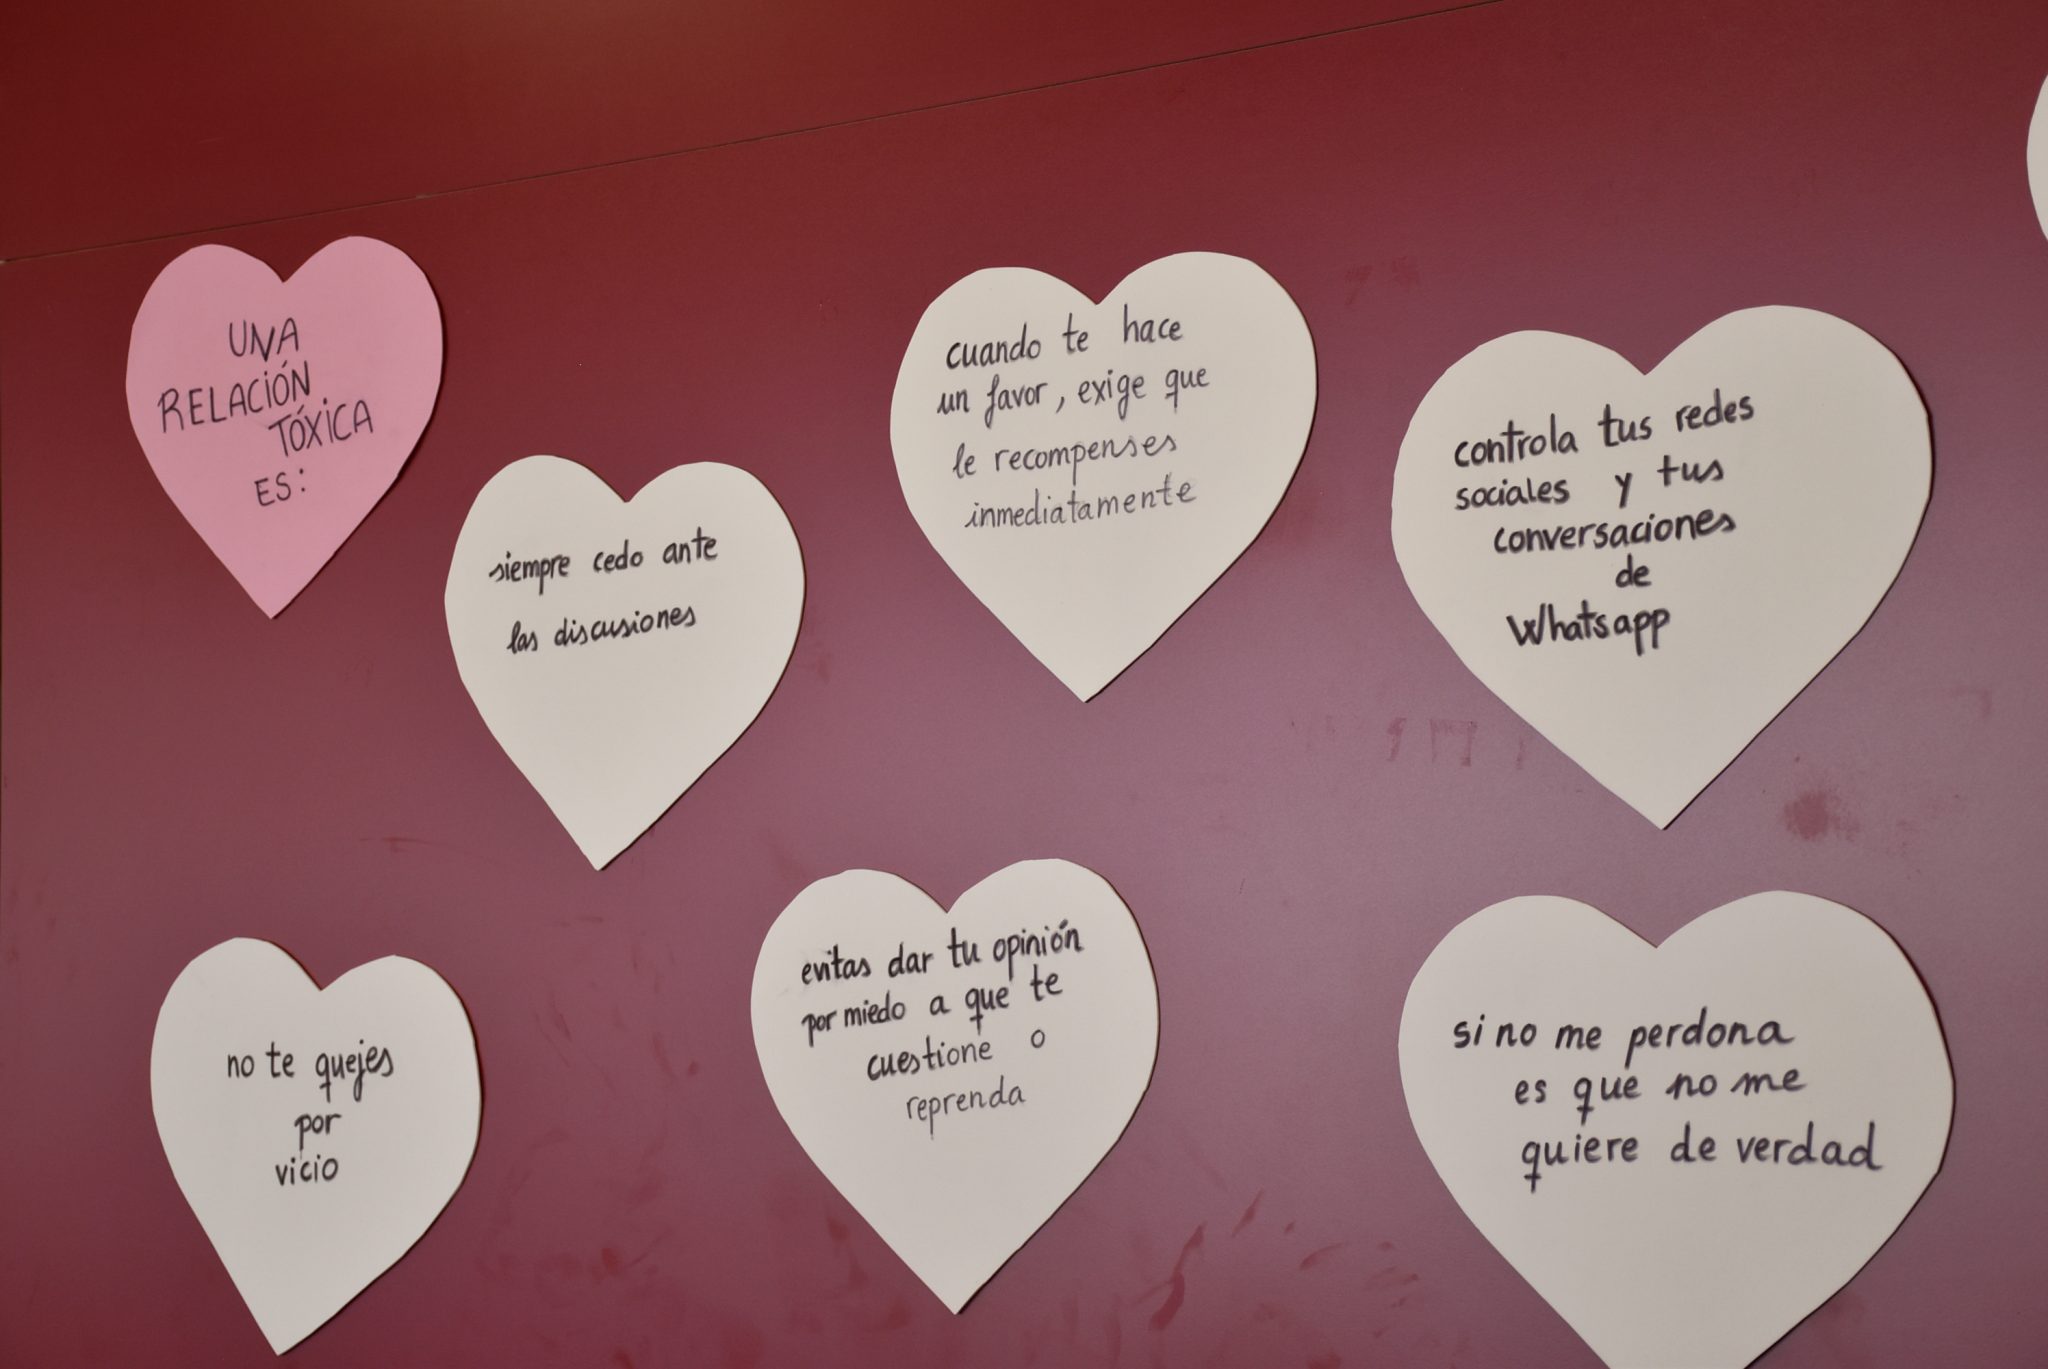 UNA
RELACIÓN
TÓXICA
ES:
siempre cedo ante
las discusiones
cuando te hace
un favor, exige que
le recompenses
inmediatamente
controla tus redes
sociales y tus
conversaciones
de
Whatsapp
no te quejes
por
vicio
evitas dar tu opinión
por miedo a que te
cuestione o
reprenda
si no me perdona
es que no me
quiere de verdad